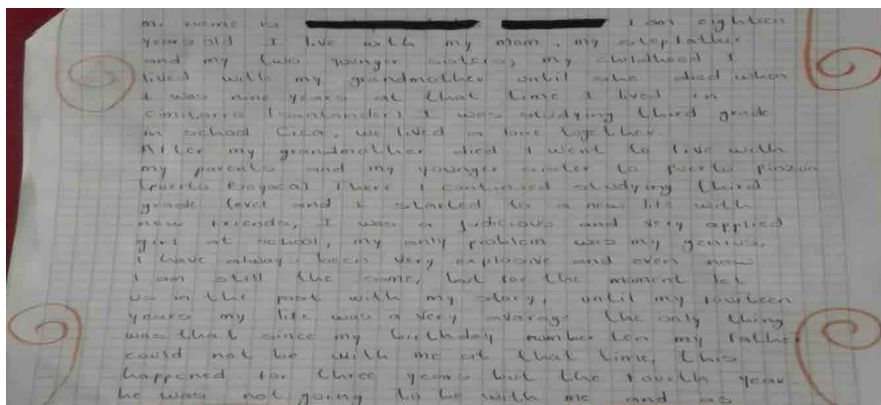 Mi name is I am eighteen
years old I live with my mom, my stepfather
and my two younger sisters, my childhood I
lived with my grandmother until she died when
I was nine years at that time I lived in
cimitarra (santander) I was studying third grade
in school Cica, we lived in love together.
After my grandmother died I went to live with
my parents and my younger sister to puerto pinzon
(puerto Boyaca) There I continued studying third
grade level and I started to a new life with
new friends, I was a judicious and very applied
girl at school, my only problem was my genius,
I have always been very explosive and even now
I am still the same, but for the moment let
us in the past with my story, until my fourteen
years my life was a very avarage the only thing
was that since my birthday number ten my father
could not be with me at that time, this
happened for three years but the fourth year
he was not going to be with me and as